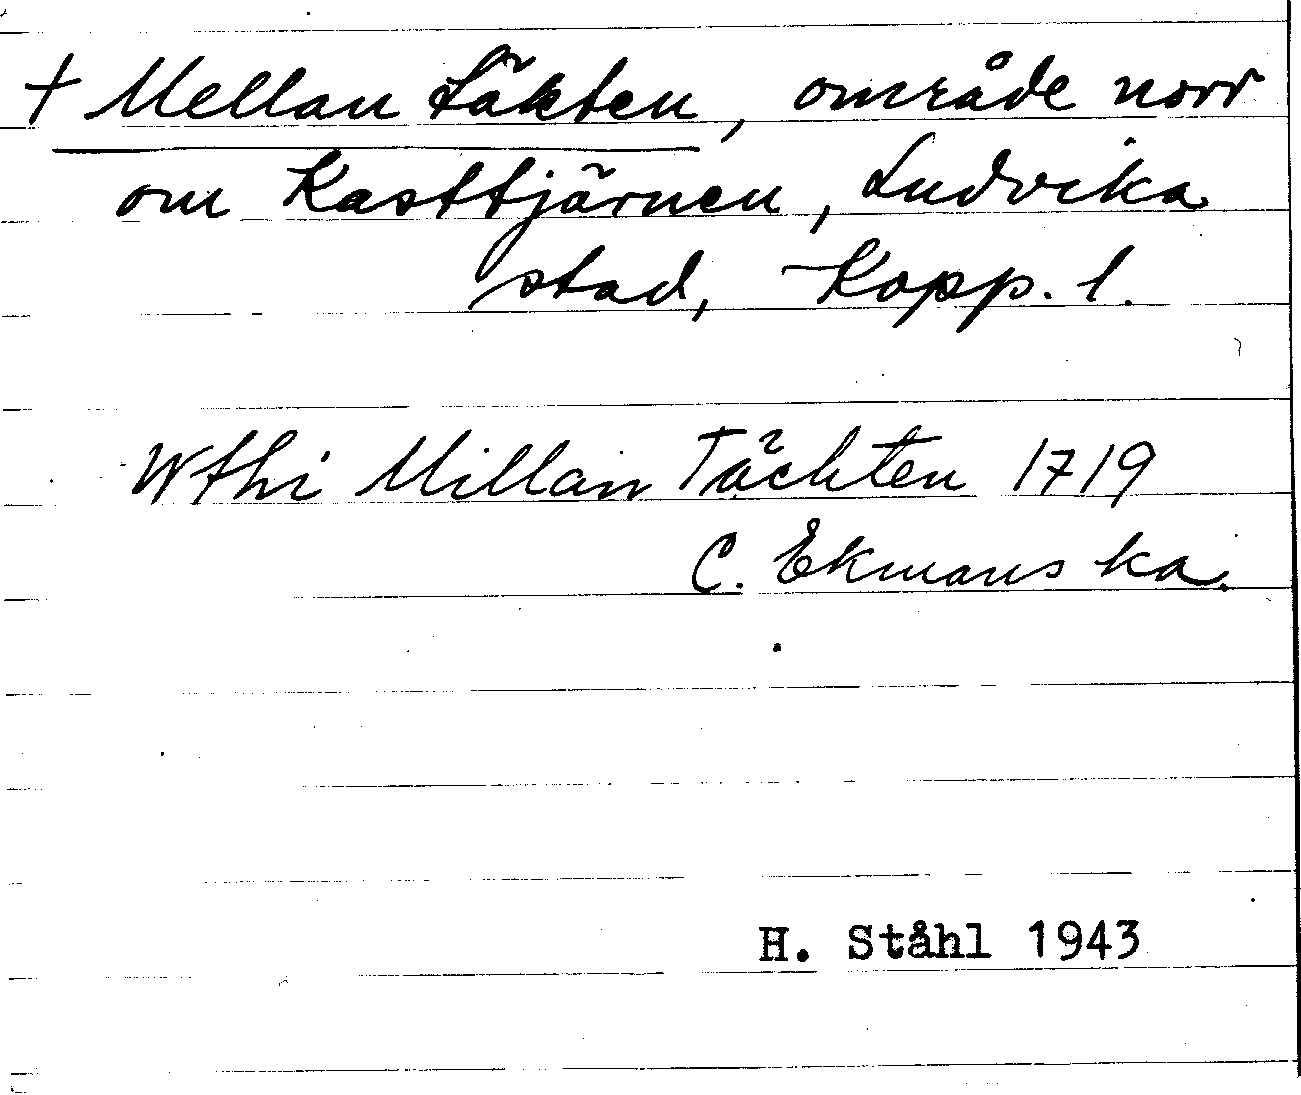 + Mellan Täkten, område norr
om Kasttjärnen, Ludvika
stad, Kopp. l.
Wthi Millan Tächten 1719
C. Ekmans ka.
H. Ståhl 1943